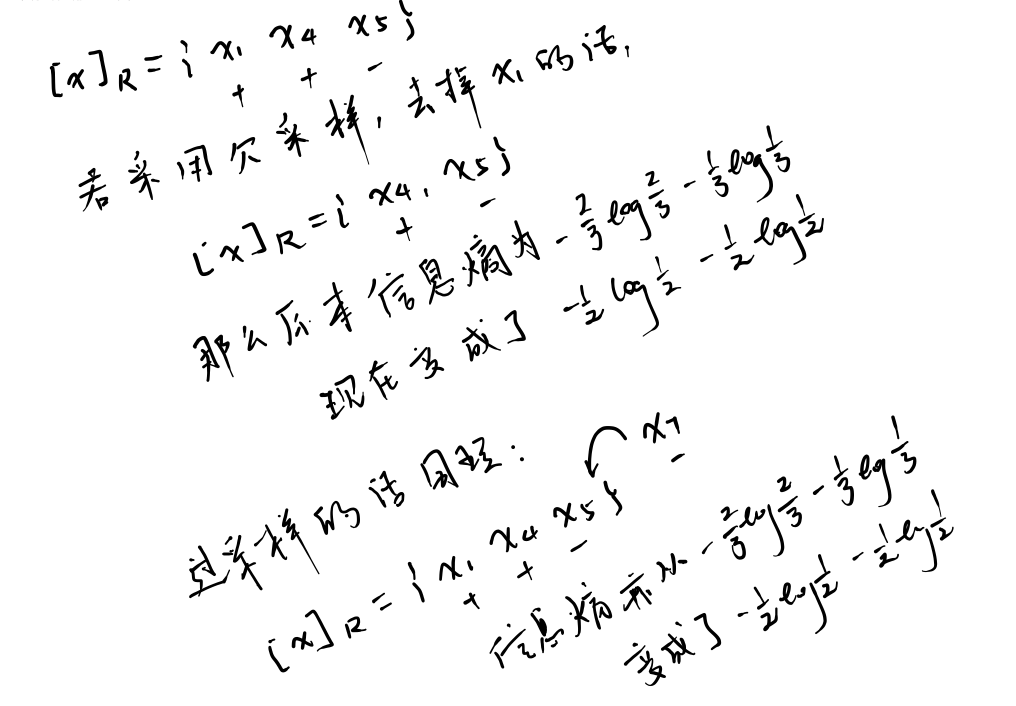 [x]R = { x1 x4 x5 }
+ + -
若采用欠采样, 去掉 x1 的话,
[x]R = { x4, x5 }
+ -
那么原本信息熵为 -2/3 log 2/3 - 1/3 log 1/3
现在变成了 -1/2 log 1/2 - 1/2 log 1/2
过采样的话同理:
x7
-
[x]R = { x1 x4 x5 }
+ + -
信息熵亦从 -2/3 log 2/3 - 1/3 log 1/3
变成了 -1/2 log 1/2 - 1/2 log 1/2